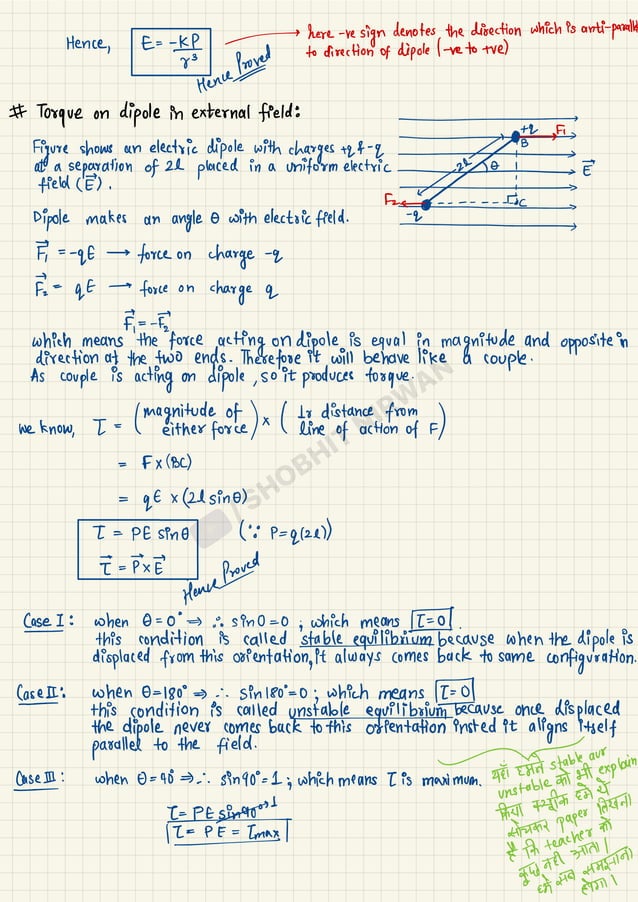 Hence, E = -KP/r³ → here -ve sign denotes the direction which is anti-parallel
to direction of dipole (-ve to +ve)
Hence Proved
# Torque on dipole in external field:
Figure shows an electric dipole with charges +q & -q
at a separation of 2l placed in a uniform electric
field (E⃗).
+q
F₁
B
2l
θ
E⃗
F₂
-q
C
Dipole makes an angle θ with electric field.
F⃗₁ = -qE → force on charge -q
F⃗₂ = qE → force on charge q
F⃗₁ = -F⃗₂
which means the force acting on dipole is equal in magnitude and opposite in
direction at the two ends. Therefore it will behave like a couple.
As couple is acting on dipole, so it produces torque.
we know, τ = (magnitude of either force) × (⊥r distance from line of action of F)
= F × (BC)
= qE × (2l sinθ)
τ = PE sinθ (∵ P = q(2l))
τ⃗ = P⃗ × E⃗
Hence Proved
/SHOBHIT NIRWAN
Case I: when θ = 0° ⇒ ∴ sin0 = 0 ; which means τ=0.
this condition is called stable equilibrium because when the dipole is
displaced from this orientation, it always comes back to same configuration.
Case II: when θ = 180° ⇒ ∴ sin180° = 0 ; which means τ=0
this condition is called unstable equilibrium because once displaced
the dipole never comes back to this orientation insted it aligns itself
parallel to the field.
Case III: when θ = 90° ⇒ ∴ sin90° = 1 ; which means τ is maximum.
τ = PE sin90° → 1
τ = PE = τmax
यहाँ हमने stable aur
unstable को भी explain
किया क्यूँकि हमे ये
सोचकर paper लिखना
है कि teacher को
कुछ नहीं आता।
हमे सब समझाना
होगा।